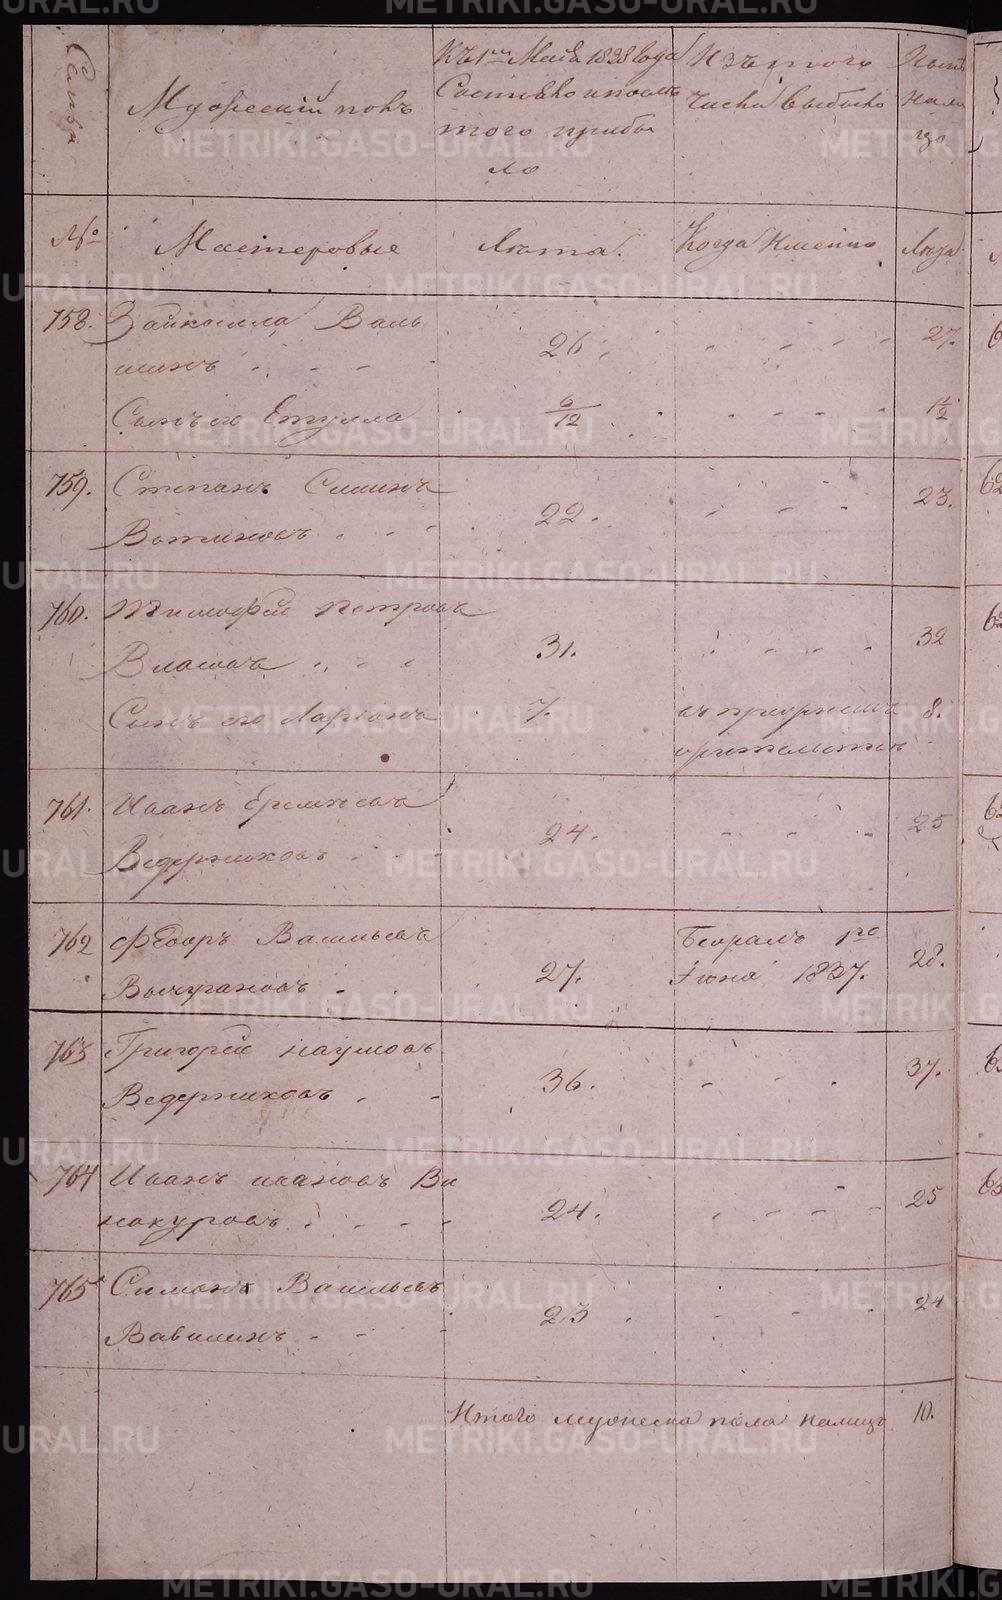 Семья
Мужеский полъ
Къ 1му Маiя 1838 года
Состояло и после
того прибы
ло
Изъ того
числа выбыло
Ныне
нали
цо
№
Мастеровые
Лета.
Когда Именно
Лета
758. Зайкилла Валь
шинъ 26. 27.
Сынъ его Етулла 6/12 1 1/2
759. Степанъ Саминъ
Вотиновъ 22. 23.
760. Тимофей Петровъ
Власовъ 31. 32
Сынъ его Ларiонъ 7. 8.
761. Иванъ Еремеевъ
Ведерниковъ 24. 25
762 Федоръ Васильевъ
Вычугановъ 27. 28.
Бежалъ 1го
Iюня 1837.
763 Григорей Наумовъ
Ведерниковъ 36. 37.
764 Иванъ Ивановъ Ви
нокуровъ 24. 25
765 Симонъ Васильевъ
Вавилинъ 23 24
Итого мужеска пола налицо 10.
METRIKI.GASO-URAL.RU